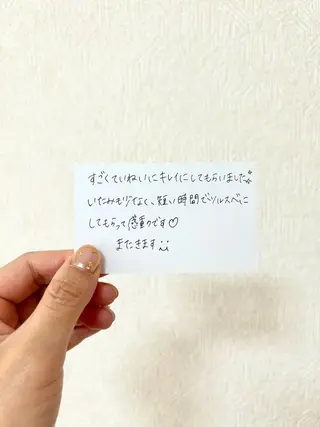 すごくていねいにキレイにしてもらいました
いたみも少なく、短い時間でツルスベに
してもらって感動です♡
またきます